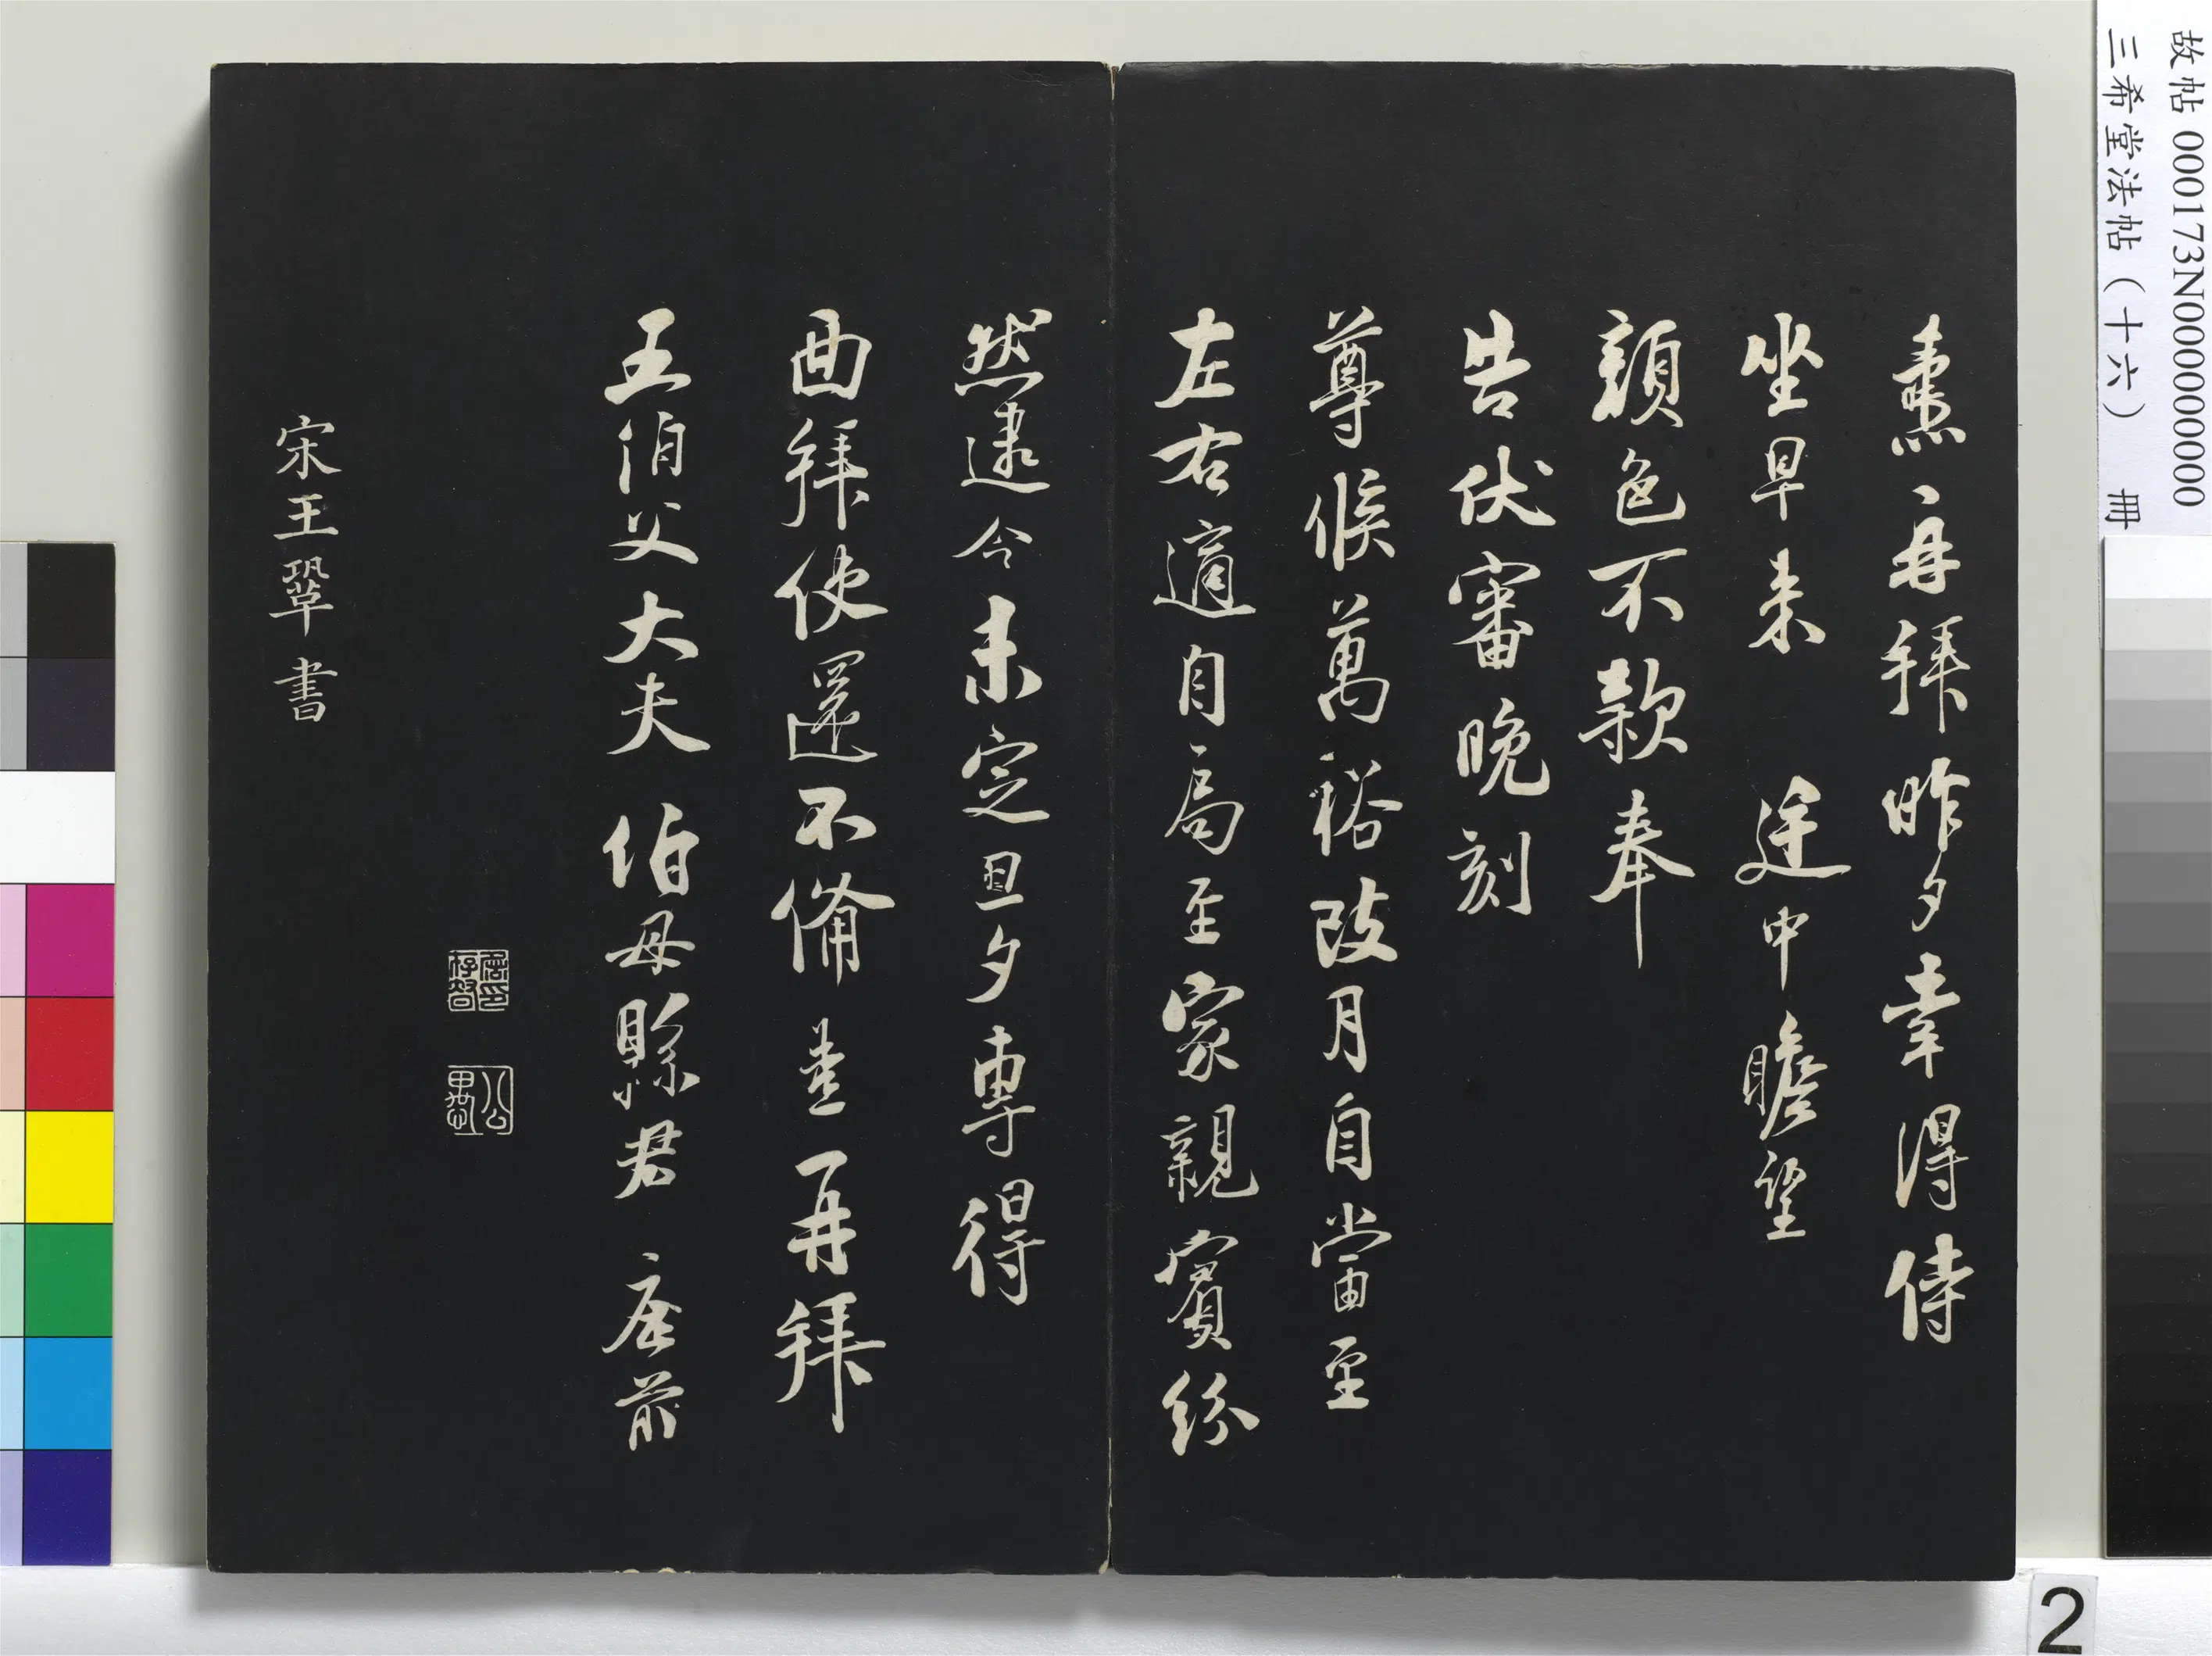 故帖 000173N000000000
三希堂法帖（十六） 冊
燾、再拜昨夕幸得侍
坐早来 廷中瞻望
顏色不款奉
告伏審晚刻
尊候萬裕改月自當至
左右適自局至家親賓紛
然逮今未定旦夕專得
面拜使還不備 燾 再拜
王伯父大夫 伯母縣君 座前
宋王鞏書
2